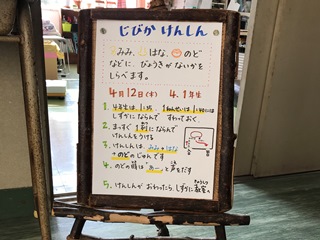 じびか けんしん
みみ、はな、のど
などに、びょうきがないかを
しらべます。
4月12日(木) 4、1年生
1.
しずかに ならんで すわっておく。
2. まっすぐ 1列にならんで
けんしんをうける
3. けんしんは みみ→はな
→のどのじゅんです
4. のどの時は あー と声をだす
5. けんしんが おわったら しずかに教室へ
きょうしつ